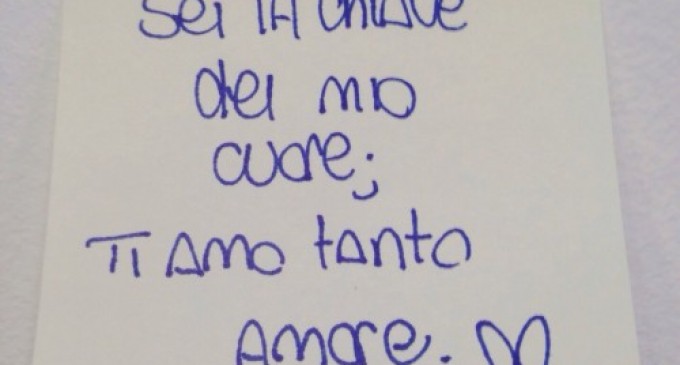 Sei la chiave
del mio
cuore;
Ti amo tanto
Amore. ♡